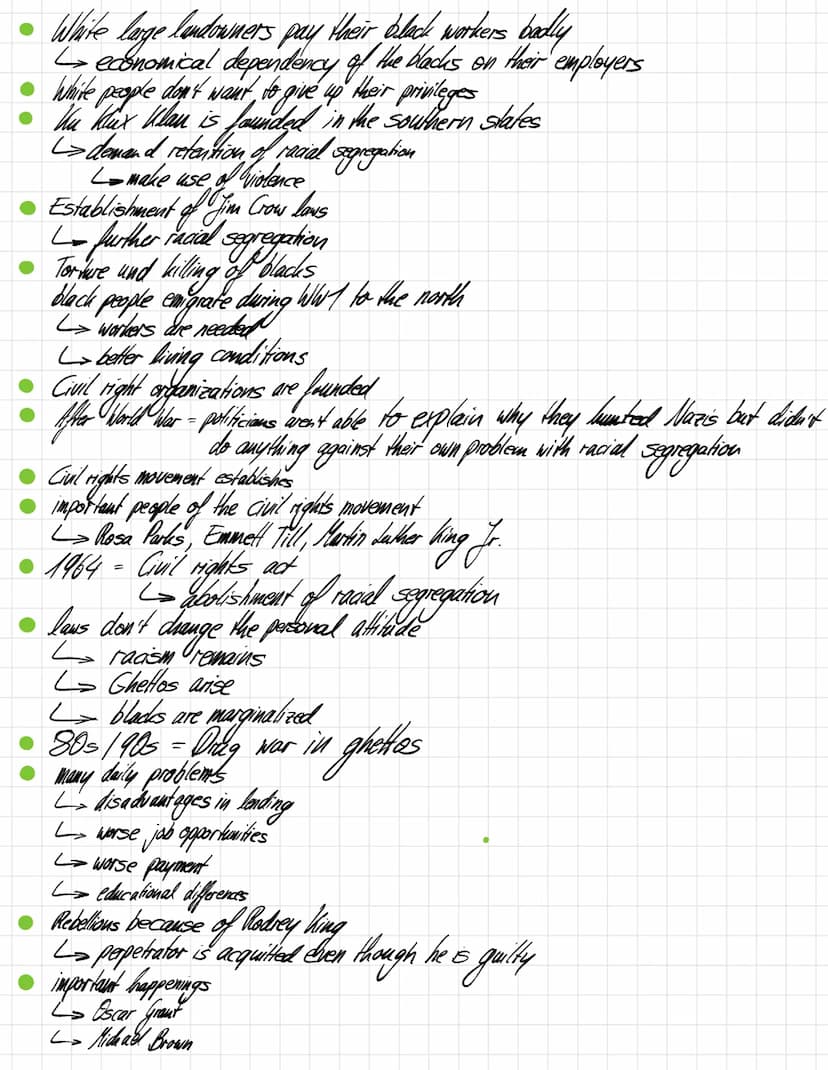 • White large landowners pay their black workers badly
↳ economical dependency of the blacks on their employers
• White people don't want to give up their privileges
• Ku Klux Klan is founded in the southern states
↳ demand retention of racial segregation
↳ make use of violence
• Establishment of Jim Crow laws
↳ further racial segregation
• Torture und killing of blacks
black people emigrate during WW1 to the north
↳ workers are needed
↳ better living conditions
• Civil right organizations are founded
• After World War = politicians aren't able to explain why they hunted Nazis but didn't
do anything against their own problem with racial segregation
• Civil rights movement establishes
• important people of the civil rights movement
↳ Rosa Parks, Emmett Till, Martin Luther King Jr.
• 1964 = Civil rights act
↳ abolishment of racial segregation
• laws don't change the personal attitude
↳ racism remains
↳ Ghettos arise
↳ blacks are marginalized
• 80s/90s = Drug war in ghettos
• many daily problems
↳ disadvantages in lending
↳ worse job opportunities
↳ worse payment
↳ educational differences
• Rebellions because of Rodney King
↳ perpetrator is acquitted even though he is guilty
• important happenings
↳ Oscar Grant
↳ Michael Brown